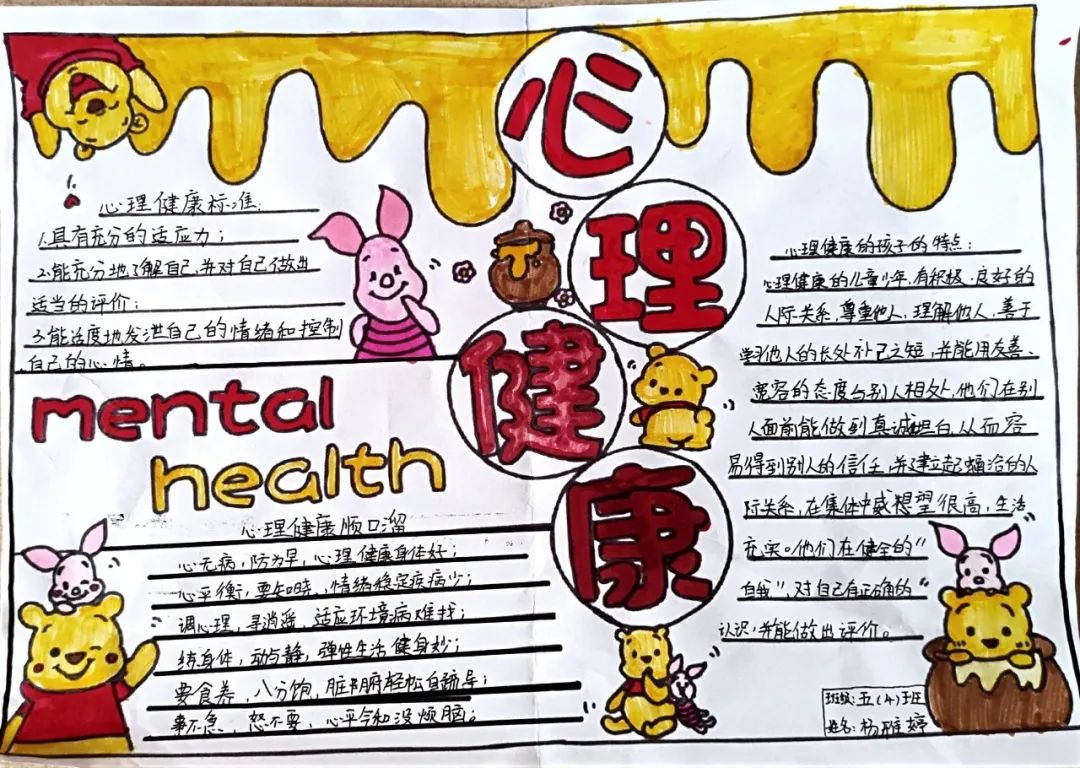 心理健康
心理健康标准:
1.具有充分的适应力；
2.能充分地了解自己,并对自己做出
适当的评价；
3.能适度地发泄自己的情绪和控制
自己的心情。
mental
health
心理健康顺口溜
心无病,防为早,心理健康身体好；
心平衡,要知晓,情绪稳定疾病少；
调心理,寻逍遥,适应环境病难找；
练身体,动与静,弹性生活健身妙；
要食养,八分饱,脏腑轻松自疏导；
事不急,怒不要,心平气和没烦脑；
心理健康的孩子的特点:
心理健康的儿童少年,有积极、良好的
人际关系,尊重他人,理解他人,善于
学习他人的长处补己之短,并能用友善、
宽容的态度与别人相处,他们在别
人面前能做到真诚坦白,从而容
易得到别人的信任,并建立起融洽的人
际关系,在集体中威望很高,生活
充实。他们在健全的“
自我”,对自己有正确的“
认识,并能做出评价。
班级:五(4)班
姓名:杨雅婷